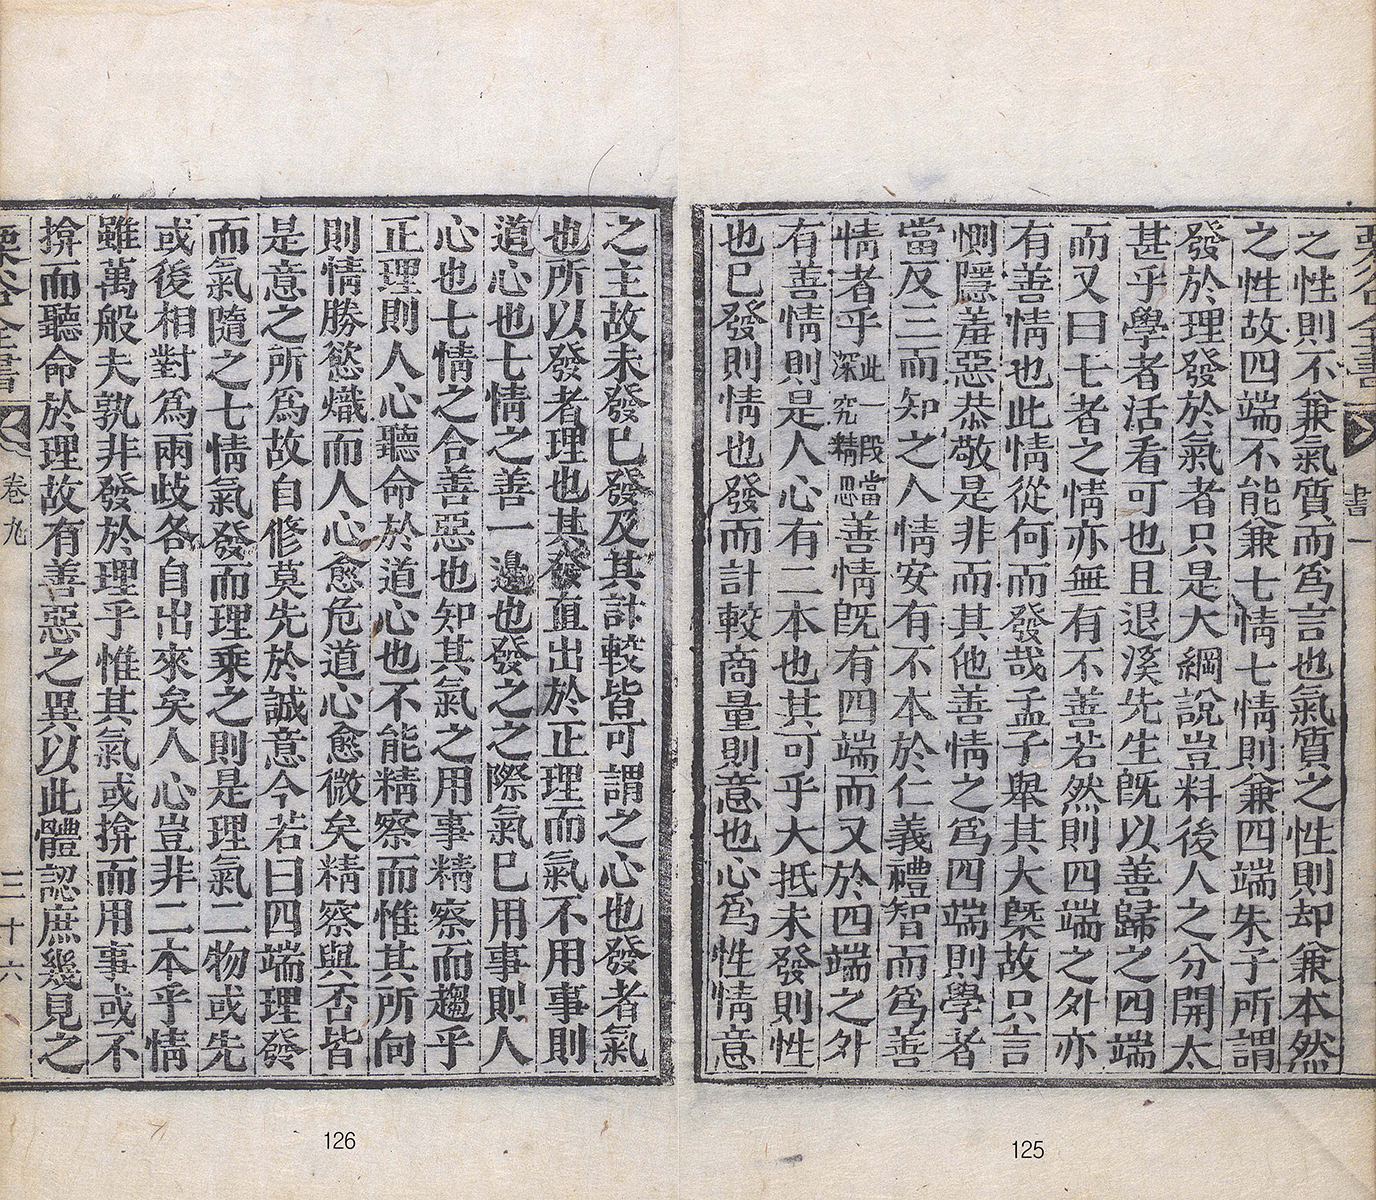 書一
之性則不兼氣質而爲言也氣質之性則却兼本然
之性故四端不能兼七情七情則兼四端朱子所謂
發於理發於氣者只是大綱說豈料後人之分開太
甚乎學者活看可也且退溪先生旣以善歸之四端
而又曰七者之情亦無有不善若然則四端之外亦
有善情也此情從何而發哉孟子舉其大槩故只言
惻隱羞惡恭敬是非而其他善情之爲四端則學者
當反三而知之人情安有不本於仁義禮智而爲善
情者乎此一段當深究精思善情旣有四端而又於四端之外
有善情則是人心有二本也其可乎大抵未發則性
也已發則情也發而計較商量則意也心爲性情意
之主故未發已發及其計較皆可謂之心也發者氣
也所以發者理也其發直出於正理而氣不用事則
道心也七情之善一邊也發之之際氣已用事則人
心也七情之合善惡也知其氣之用事精察而趨乎
正理則人心聽命於道心也不能精察而惟其所向
則情勝慾熾而人心愈危道心愈微矣精察與否皆
是意之所爲故自修莫先於誠意今若曰四端理發
而氣隨之七情氣發而理乘之則是理氣二物或先
或後相對爲兩歧各自出來矣人心豈非二本乎情
雖萬般夫孰非發於理乎惟其氣或揜而用事或不
揜而聽命於理故有善惡之異以此體認庶幾見之
卷九
三十六
126
125